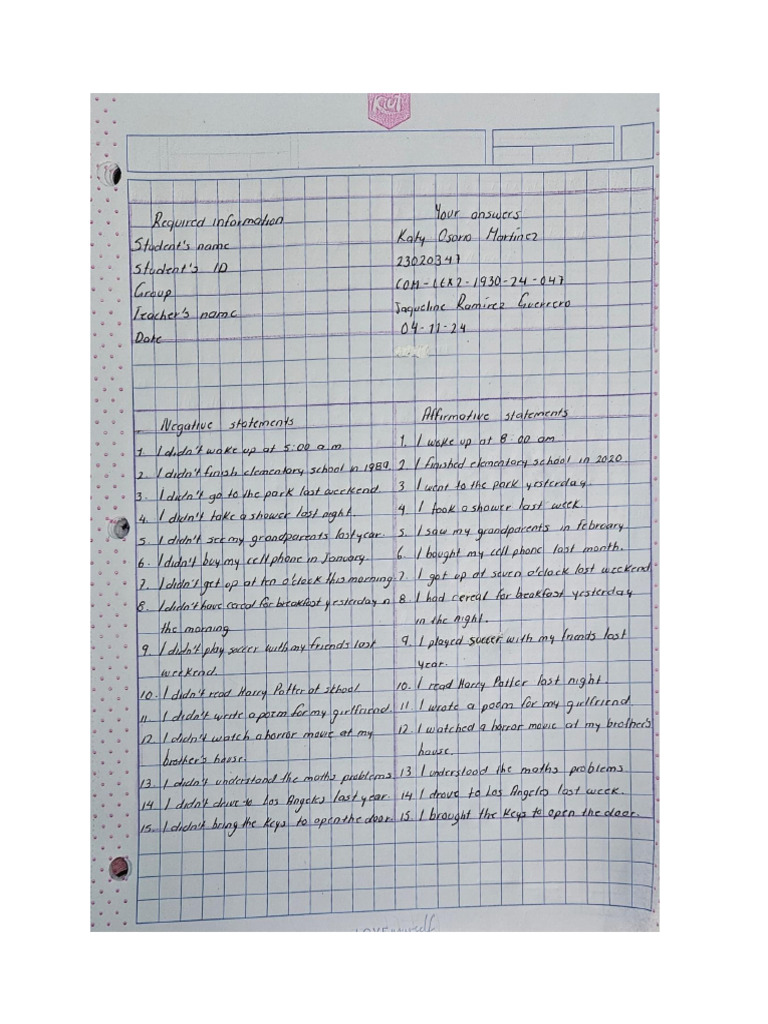 Kiut
Required information Your answers
Student's name Katy Osorio Martinez
Student's ID 23020347
Group COM-LEX2-1930-24-047
Teacher's name Jaqueline Ramirez Guerrero
Date 04-11-24
Negative statements Affirmative statements
1. I didn't wake up at 5:00 a.m 1. I woke up at 8:00 am
2. I didn't finish elementary school in 1989. 2. I finished elementary school in 2020.
3. I didn't go to the park last weekend. 3 I went to the park yesterday.
4. I didn't take a shower last night. 4 I took a shower last week.
5. I didn't see my grandparents last year. 5. I saw my grandparents in february
6. I didn't buy my cell phone in January. 6. I bought my cell phone last month.
7. I didn't get up at ten o'clock this morning. 7. I got up at seven o'clock last weekend
8. I didn't have cereal for breakfast yesterday n 8. I had cereal for beakfast yesterday
the morning in the night.
9. I didn't play soccer with my friends last 9. I played soccer with my friends last
weekend. year.
10. I didn't read Harry Potter at school 10. I read Harry Potter last night.
11. I didn't write a poem for my girlfriend. 11 I wrote a poem for my girlfriend.
12 I didn't watch a horror movie at my 12. I watched a horror movie at my brother's
brother's house. house.
13. I didn't understand the maths problems. 13 I understood the maths problems
14 I didn't drive to Los Angeles last year. 14 I drove to Los Angeles last week.
15. I didn't bring the Keys to open the door. 15 I brought the Keys to open the door.
LOVE yourself